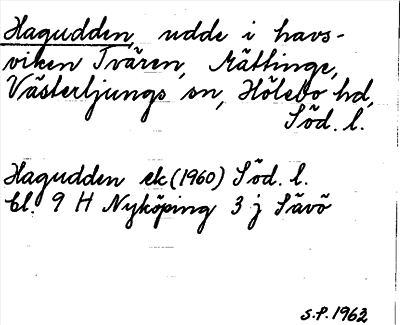 Hagudden, udde i havs-
viken Tvären, Mättinge,
Västerljungs sn, Hölebo hd,
Söd. l.
Hagudden ek (1960) Söd. l.
bl. 9 H Nyköping 3 j Sävö
S.P. 1962